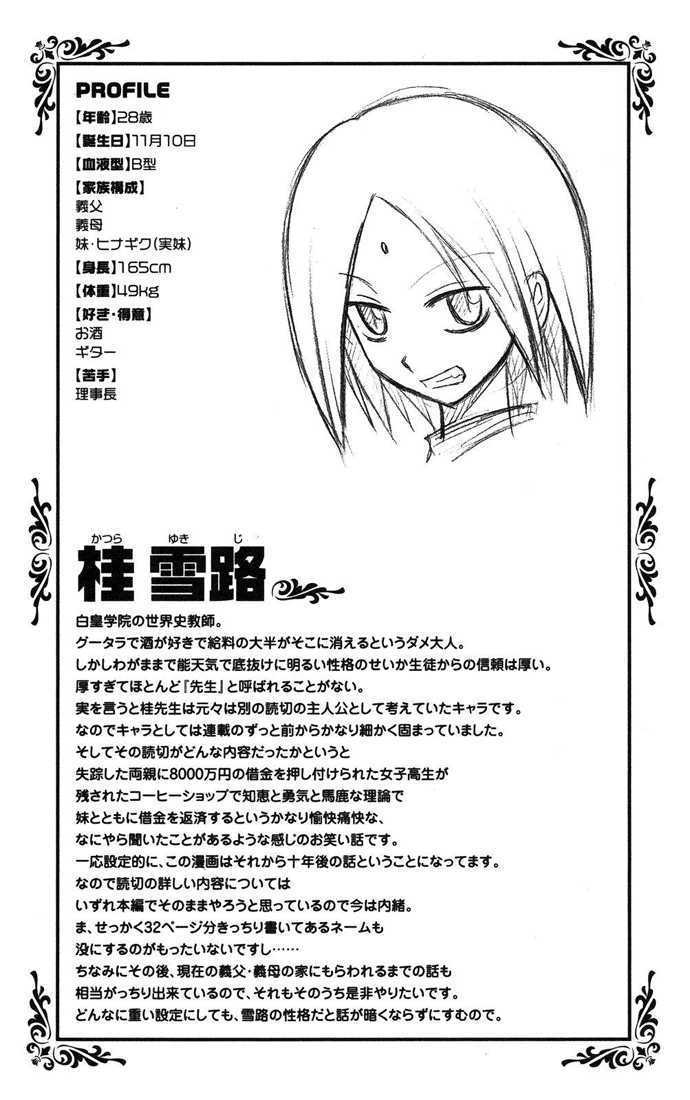 PROFILE
【年齢】28歳
【誕生日】11月10日
【血液型】B型
【家族構成】
義父
義母
妹・ヒナギク(実妹)
【身長】165cm
【体重】49kg
【好き・得意】
お酒
ギター
【苦手】
理事長
かつら ゆき じ
桂 雪路
白皇学院の世界史教師。
グータラで酒が好きで給料の大半がそこに消えるというダメ大人。
しかしわがままで能天気で底抜けに明るい性格のせいか生徒からの信頼は厚い。
厚すぎてほとんど『先生』と呼ばれることがない。
実を言うと桂先生は元々は別の読切の主人公として考えていたキャラです。
なのでキャラとしては連載のずっと前からかなり細かく固まっていました。
そしてその読切がどんな内容だったかというと
失踪した両親に8000万円の借金を押し付けられた女子高生が
残されたコーヒーショップで知恵と勇気と馬鹿な理論で
妹とともに借金を返済するというかなり愉快痛快な、
なにやら聞いたことがあるような感じのお笑い話です。
一応設定的に、この漫画はそれから十年後の話ということになってます。
なので読切の詳しい内容については
いずれ本編でそのままやろうと思っているので今は内緒。
ま、せっかく32ページ分きっちり書いてあるネームも
没にするのがもったいないですし……
ちなみにその後、現在の義父・義母の家にもらわれるまでの話も
相当がっちり出来ているので、それもそのうち是非やりたいです。
どんなに重い設定にしても、雪路の性格だと話が暗くならずにすむので。